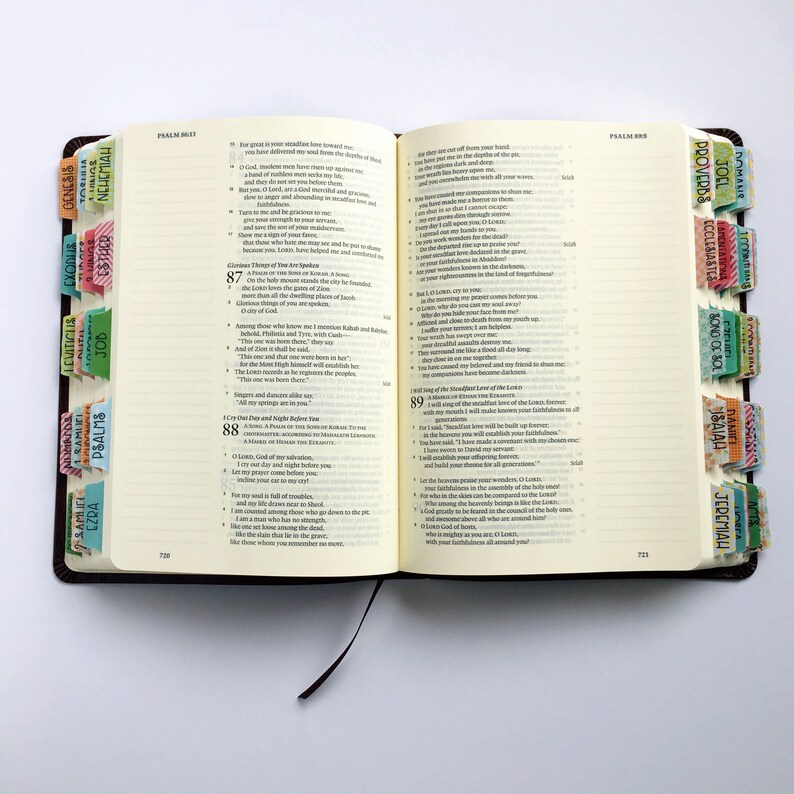 PSALM 86:13
13 For great is your steadfast love toward me;
you have delivered my soul from the depths of Sheol.
14 O God, insolent men have risen up against me;
a band of ruthless men seeks my life,
and they do not set you before them.
15 But you, O Lord, are a God merciful and gracious,
slow to anger and abounding in steadfast love and
faithfulness.
16 Turn to me and be gracious to me;
give your strength to your servant,
and save the son of your maidservant.
17 Show me a sign of your favor,
that those who hate me may see and be put to shame
because you, LORD, have helped me and comforted me.
Glorious Things of You Are Spoken
87 A PSALM OF THE SONS OF KORAH. A SONG.
On the holy mount stands the city he founded;
2 the LORD loves the gates of Zion
more than all the dwelling places of Jacob.
3 Glorious things of you are spoken,
O city of God. Selah
4 Among those who know me I mention Rahab and Babylon;
behold, Philistia and Tyre, with Cush—
"This one was born there," they say.
5 And of Zion it shall be said,
"This one and that one were born in her";
for the Most High himself will establish her.
6 The LORD records as he registers the peoples,
"This one was born there." Selah
7 Singers and dancers alike say,
"All my springs are in you."
I Cry Out Day and Night Before You
88 A SONG. A PSALM OF THE SONS OF KORAH. TO THE
CHOIRMASTER: ACCORDING TO MAHALATH LEANNOTH.
A MASKIL OF HEMAN THE EZRAHITE.
1 O LORD, God of my salvation,
I cry out day and night before you.
2 Let my prayer come before you;
incline your ear to my cry!
3 For my soul is full of troubles,
and my life draws near to Sheol.
4 I am counted among those who go down to the pit;
I am a man who has no strength,
5 like one set loose among the dead,
like the slain that lie in the grave,
like those whom you remember no more,
720
PSALM 89:8
for they are cut off from your hand.
6 You have put me in the depths of the pit,
in the regions dark and deep.
7 Your wrath lies heavy upon me,
and you overwhelm me with all your waves. Selah
8 You have caused my companions to shun me;
you have made me a horror to them.
I am shut in so that I cannot escape;
9 my eye grows dim through sorrow.
Every day I call upon you, O LORD;
I spread out my hands to you.
10 Do you work wonders for the dead?
Do the departed rise up to praise you? Selah
11 Is your steadfast love declared in the grave,
or your faithfulness in Abaddon?
12 Are your wonders known in the darkness,
or your righteousness in the land of forgetfulness?
13 But I, O LORD, cry to you;
in the morning my prayer comes before you.
14 O LORD, why do you cast my soul away?
Why do you hide your face from me?
15 Afflicted and close to death from my youth up,
I suffer your terrors; I am helpless.
16 Your wrath has swept over me;
your dreadful assaults destroy me.
17 They surround me like a flood all day long;
they close in on me together.
18 You have caused my beloved and my friend to shun me;
my companions have become darkness.
I Will Sing of the Steadfast Love of the LORD
89 A MASKIL OF ETHAN THE EZRAHITE.
I will sing of the steadfast love of the LORD, forever;
with my mouth I will make known your faithfulness to all
generations.
2 For I said, "Steadfast love will be built up forever;
in the heavens you will establish your faithfulness."
3 You have said, "I have made a covenant with my chosen one;
I have sworn to David my servant:
4 'I will establish your offspring forever,
and build your throne for all generations.'" Selah
5 Let the heavens praise your wonders, O LORD,
your faithfulness in the assembly of the holy ones!
6 For who in the skies can be compared to the LORD?
Who among the heavenly beings is like the LORD,
7 a God greatly to be feared in the council of the holy ones,
and awesome above all who are around him?
8 O LORD God of hosts,
who is mighty as you are, O LORD,
with your faithfulness all around you?
721
GENESIS
JOSHUA
1 KINGS
NEHEMIAH
EXODUS
2 KINGS
ESTHER
LEVITICUS
JOB
NUMBERS
1 SAMUEL
PSALMS
2 SAMUEL
EZRA
PROVERBS
JOEL
ROMANS
ECCLESIASTES
LAMENTATIONS
1 CORINTHIANS
SONG OF SOL
EZEKIEL
2 CORINTHIANS
ISAIAH
DANIEL
JEREMIAH
HOSEA
ACTS